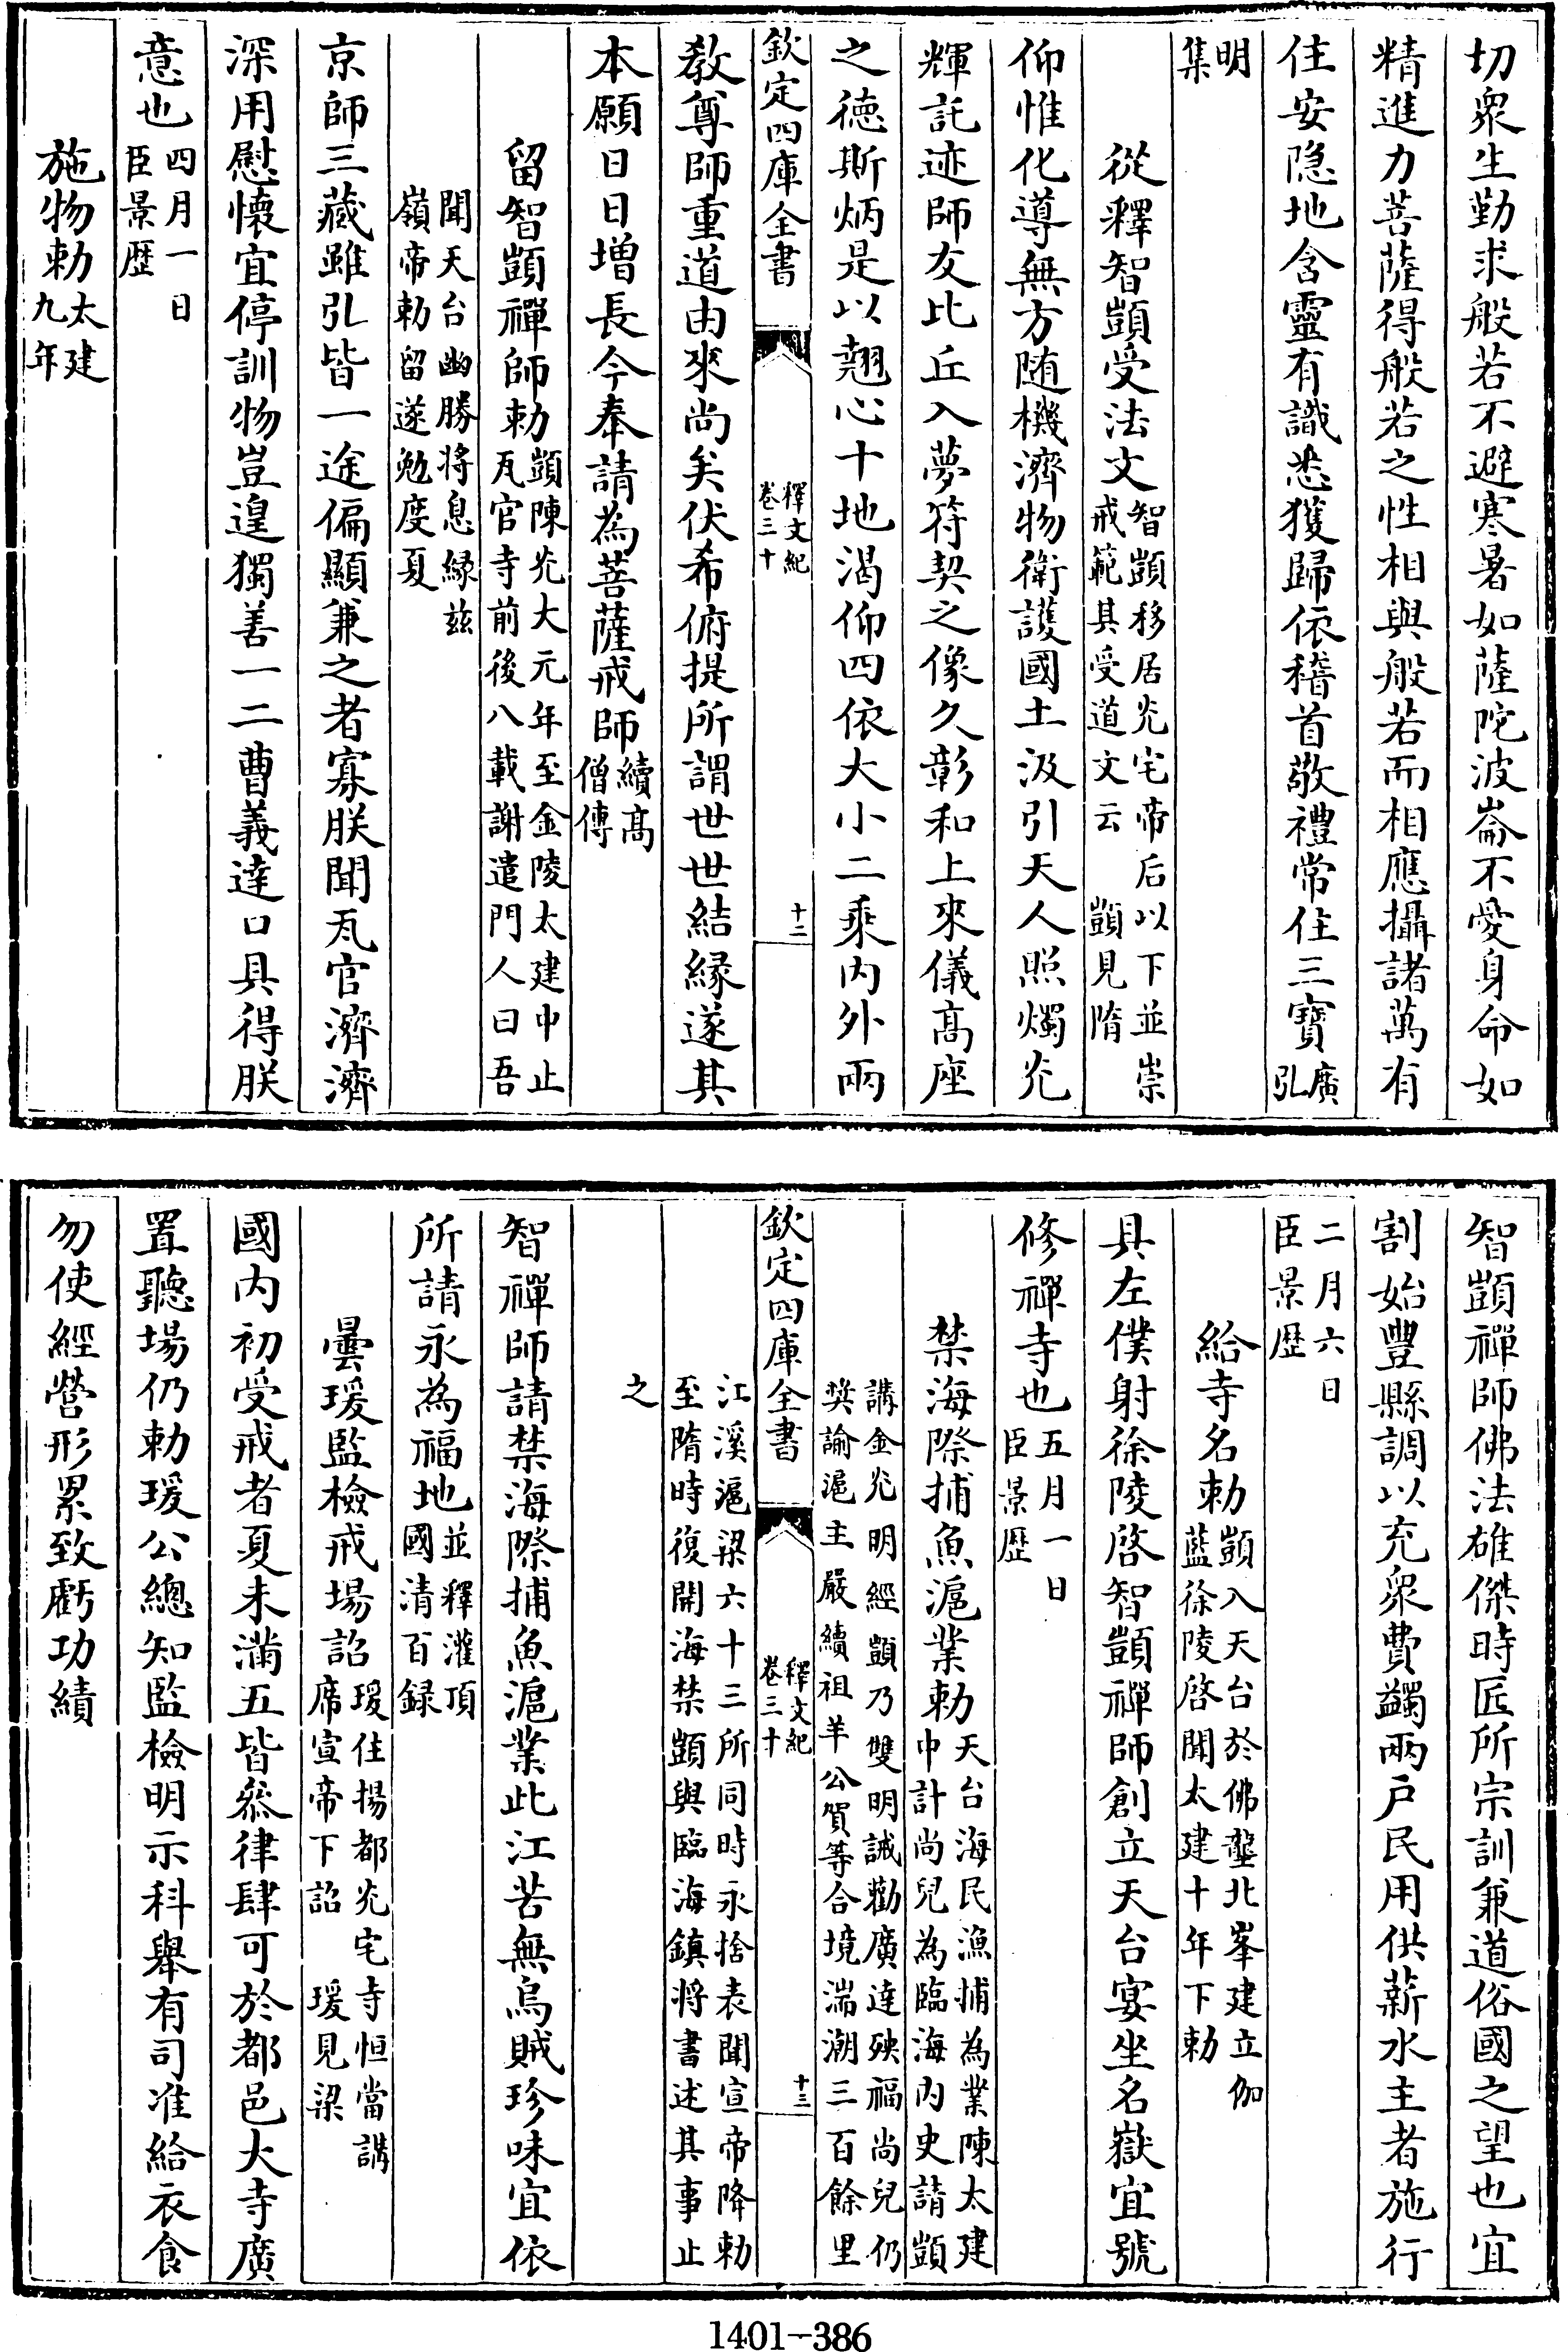 切衆生勤求般若不避寒暑如薩陀波崙不愛身命如
精進力菩薩得般若之性相與般若而相應攝諸萬有
住安隐地含靈有識悉獲歸依稽首敬禮常住三寶廣弘
明集
從釋智顗受法文智顗移居光宅帝后以下並崇戒範其受道文云 顗見隋
仰惟化導無方随機濟物衛護國土汲引天人照燭光
輝託迹師友比丘入夢符契之像久彰和上來儀高座
之德斯炳是以翹心十地渴仰四依大小二乘内外兩
欽定四庫全書 釋文紀卷三十 十二
教尊師重道由來尚矣伏希俯提所謂世世結縁遂其
本願日日增長今奉請為菩薩戒師續高僧傳
留智顗禪師勅顗陳光大元年至金陵太建中止瓦官寺前後八載謝遣門人曰吾
聞天台幽勝将息縁兹嶺帝勅留遂勉度夏
京師三藏雖弘皆一途偏顯兼之者寡朕聞瓦官濟濟
深用慰懷宜停訓物豈遑獨善一二曹義達口具得朕
意也四月一日臣景歴
施物勅太建九年
智顗禪師佛法雄傑時匠所宗訓兼道俗國之望也宜
割始豐縣調以充衆費蠲兩户民用供薪水主者施行
二月六日臣景歴
給寺名勅顗入天台於佛壟北峯建立伽藍徐陵啓聞太建十年下勅
具左僕射徐陵啓智顗禪師創立天台宴坐名嶽宜號
修禪寺也五月一日臣景歴
禁海際捕魚滬業勅天台海民漁捕為業陳太建中計尚兒為臨海内史請顗
講金光明經顗乃雙明誡勸廣達殃福尚兒仍奬諭滬主嚴續祖羊公賀等合境湍潮三百餘里
欽定四庫全書 釋文紀卷三十 十三
江溪滬梁六十三所同時永捨表聞宣帝降勅至隋時復開海禁顗與臨海鎮将書述其事止
之
智禪師請禁海際捕魚滬業此江苦無烏賊珍味宜依
所請永為福地並釋灌頂國清百録
曇瑗監檢戒場詔瑗住揚都光宅寺恒當講席宣帝下詔 瑗見梁
國内初受戒者夏未滿五皆叅律肆可於都邑大寺廣
置聽場仍勅瑗公總知監檢明示科舉有司准給衣食
勿使經營形累致虧功績
1401-386